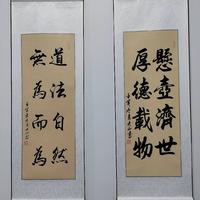 懸壺濟世
厚德載物
道法自然
無為而為